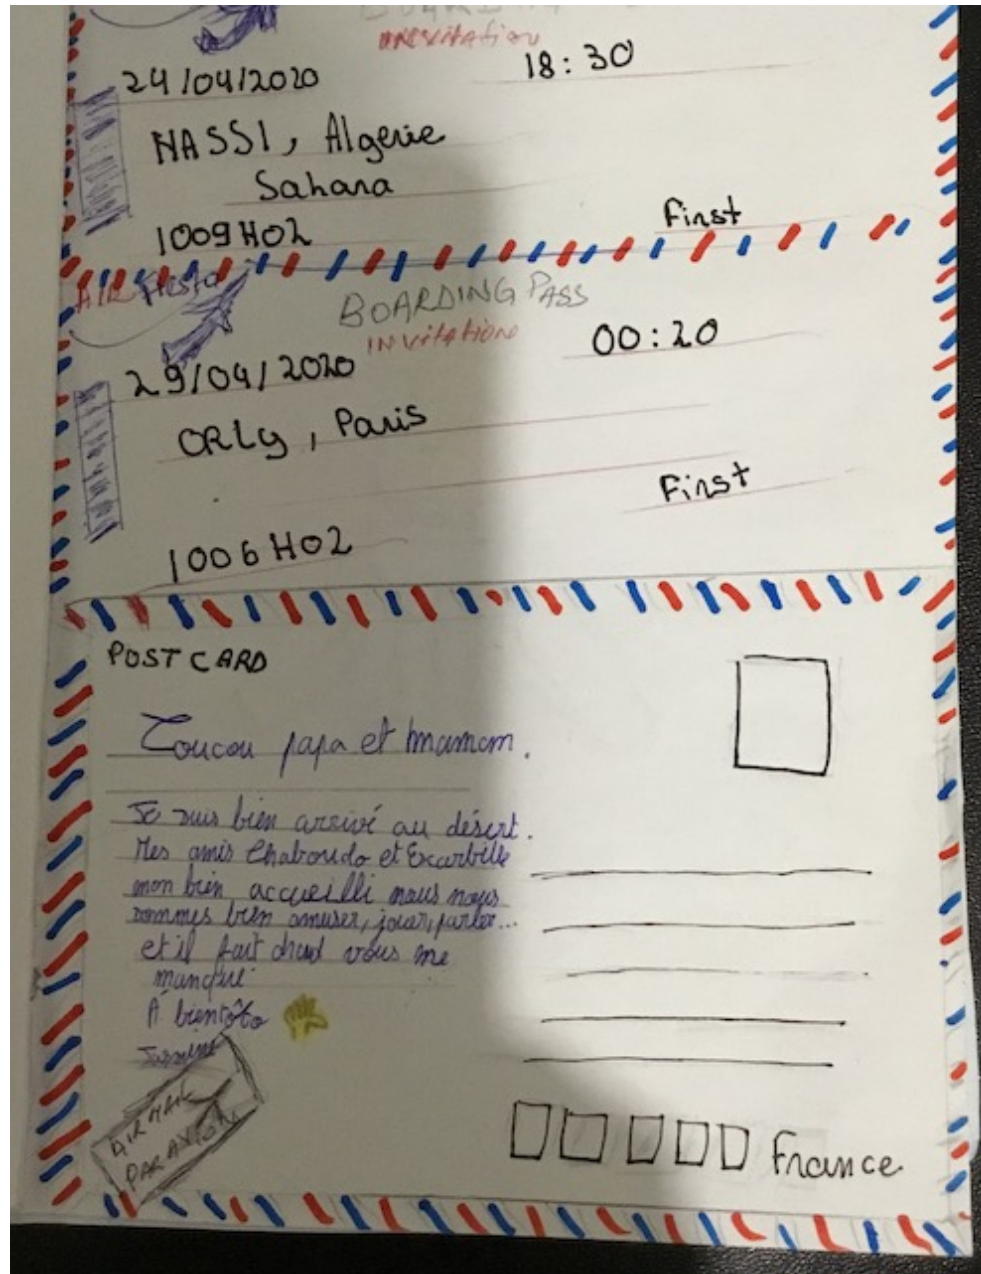 BOARDING
invitation
24/04/2020 18:30
HASSI, Algerie
Sahara
1009H02 First
AIR Fiesta
BOARDING PASS
INVitation
29/04/2020 00:20
ORLy, Paris
First
1006H02
POST CARD
Coucou papa et maman.
Je suis bien arrivé au désert.
Mes amis Chaboudo et Excarbille
mon bien accueilli nous nous
sommes bien amuser, jouer, parler...
et il fait chaud vous me
manque
À bientôto
Jasmine
AIR MAIL
PAR AVION
France